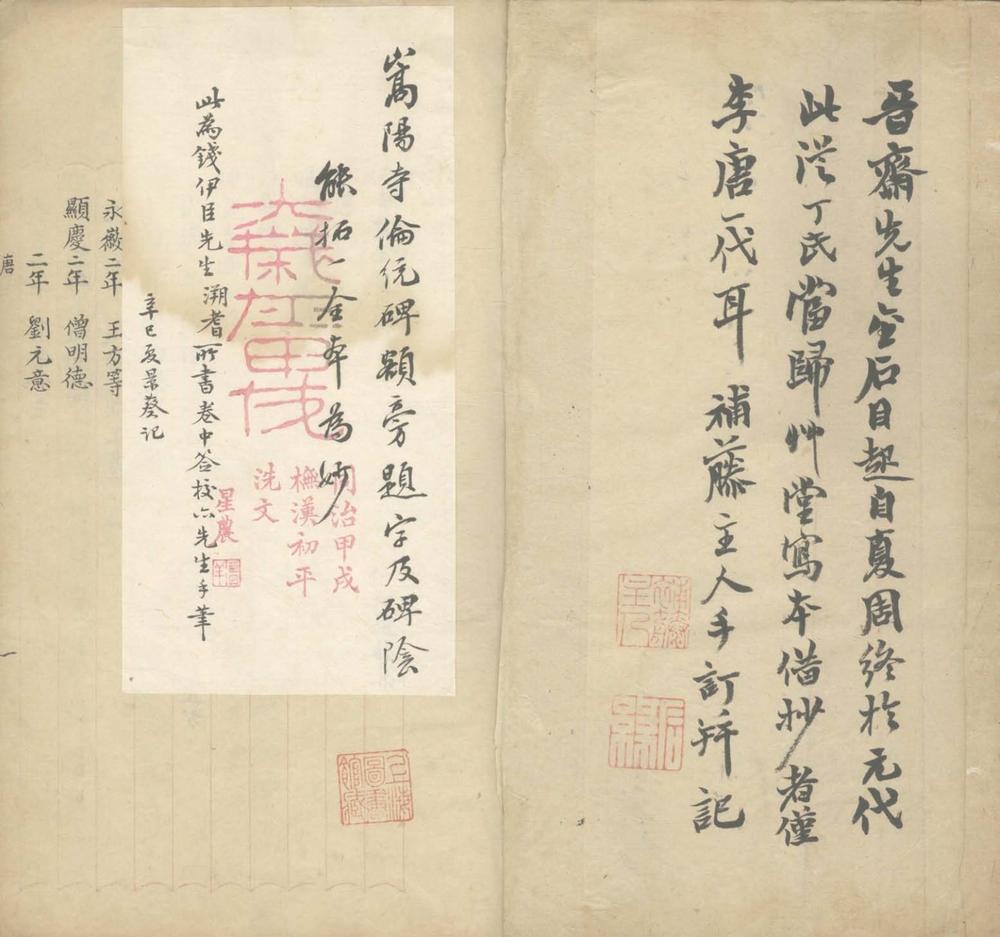 晉齋先生金石目起自夏周終於元代
此從丁氏當歸艸堂寫本借抄者僅
李唐一代耳 補藤主人手訂并記
嵩陽寺倫統碑額旁題字及碑陰
能拓一全本為妙
同治甲戌
橅漢初平
洗文
星農
此為錢伊臣先生溯耆所書卷中簽校六先生手筆
辛巳夏景葵記
永徽二年 王方等
顯慶二年 僧明德
二年 劉元意
唐
上海圖書館藏